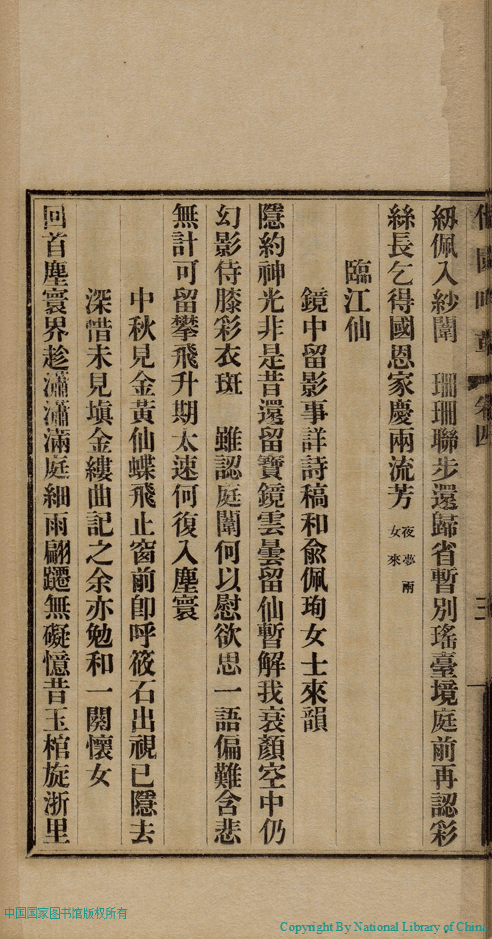 卷四
三
紉佩入紗闈　珊珊聯步還歸省暫別瑤臺境庭前再認彩
絲長乞得國恩家慶兩流芳 夜夢兩女來
臨江仙
鏡中留影事詳詩稿和俞佩珣女士來韻
隱約神光非是昔還留寶鏡雲曇留仙暫解我衰顏空中仍
幻影侍膝彩衣斑　雖認庭闈何以慰欲思一語偏難含悲
無計可留攀飛升期太速何復入塵寰
中秋見金黃仙蝶飛止窗前卽呼筱石出視已隱去
深惜未見塡金縷曲記之余亦勉和一闋懷女
回首塵寰界趁瀟瀟滿庭細雨翩躚無礙憶昔玉棺旋浙里
中国国家图书馆版权所有
Copyright By National Library of China